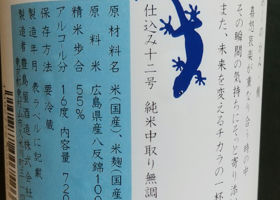 喜怒哀楽が重なり合う時の中
その瞬間の気持ちにそっと寄り添
また、未来を変えるチカラの一杯
仕込み十二号 純米中取り 無調
原材料名 米(国産)、米麹(国産
原料米 広島県産八反錦100
精米歩合 55%
アルコール分 16度 内容量 720
保存方法 要冷蔵
製造年月 表ラベルに記載
製造者